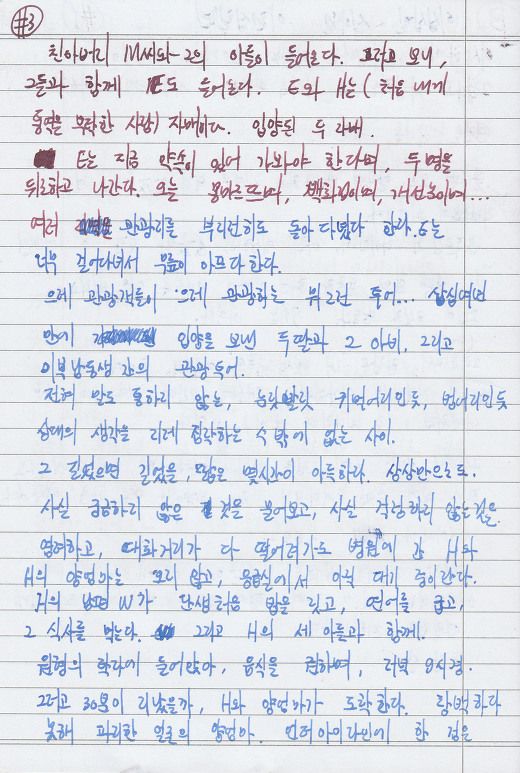 #3
친아버지 M씨와 그의 아들이 들어온다. 그리고 보니,
그들과 함께 E도 들어온다. E와 H는 (처음 내게
통역을 부탁한 사람) 자매이다. 입양된 두 자매.
E는 지금 약속이 있어 가봐야 한다며, 두 명을
뒤로하고 나간다. 오늘 몽마르뜨며, 백화점이며, 개선문이며...
여러 관광지를 부지런히도 돌아다녔다 한다. E는
너무 걸어다녀서 무릎이 아프다 한다.
으레 관광객들이 으레 관광하는 뭐 그런 투어... 삼십여년
만에 입양을 보낸 두 딸과 그 아비, 그리고
이복남동생 간의 관광투어.
전혀 말도 통하지 않는, 눈짓발짓 귀먹어리인듯, 벙어리인듯
상대의 생각을 지레 짐작하는 수 밖에 없는 사이.
그 길었으면 길었을, 짧은 몇시간이 아득하다. 상상만으로도.
사실 궁금하지 않은 것을 물어보고, 사실 걱정하지 않는 것을
염려하고, 대화거리가 다 떨어져가도 병원에 간 H와
H의 양엄마는 오지 않고, 응급실에서 아직 대기 중이란다.
H의 남편 W가 난생처음 밥을 짓고, 연어를 굽고,
그 식사를 먹는다. 그리고 H의 세 아들과 함께.
원형의 탁자에 둘러앉아, 음식을 권하며, 저녁 9시경.
그리고 30분이 지났을까, H와 양엄마가 도착한다. 창백하다
못해 파리한 얼굴의 양엄마. 언더아이라인에 한 점을